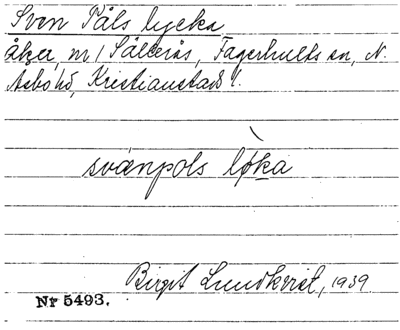 Sven Påls lycka
åker, nr 1 Sällerås, Fagerhults sn, N.
Åsbo hd, Kristianstads l.
svænpols løka
Birgit Lundkvist, 1939
Nr 5493.